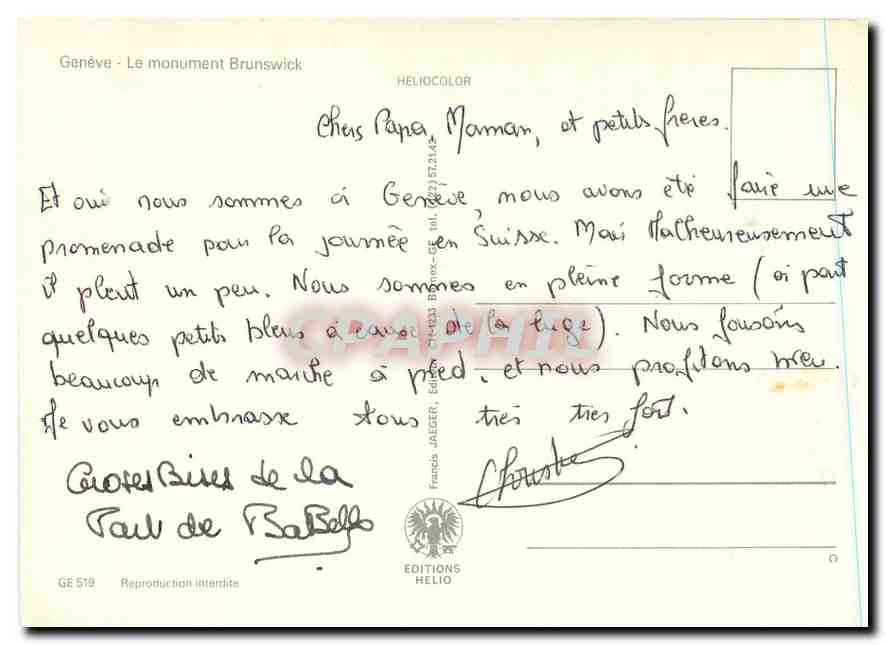 Genève - Le monument Brunswick
HELIOCOLOR
Chers Papa, Maman, et petits frères.
Et oui nous sommes à Genève, nous avons été faire une
promenade pour la journée en Suisse. Mais Malheureusement
il pleut un peu. Nous sommes en pleine forme (à part
quelques petits bleus à cause de la luge). Nous faisons
beaucoup de marche à pied, et nous profitons bien.
Je vous embrasse tous très très fort.
Grosses Bises de la
Part de
Francis JAEGER, Edition CH-1233 Bernex-GE tél. (022) 57.21.42
CPAPHIL
EDITIONS
HELIO
GE 519 Reproduction interdite